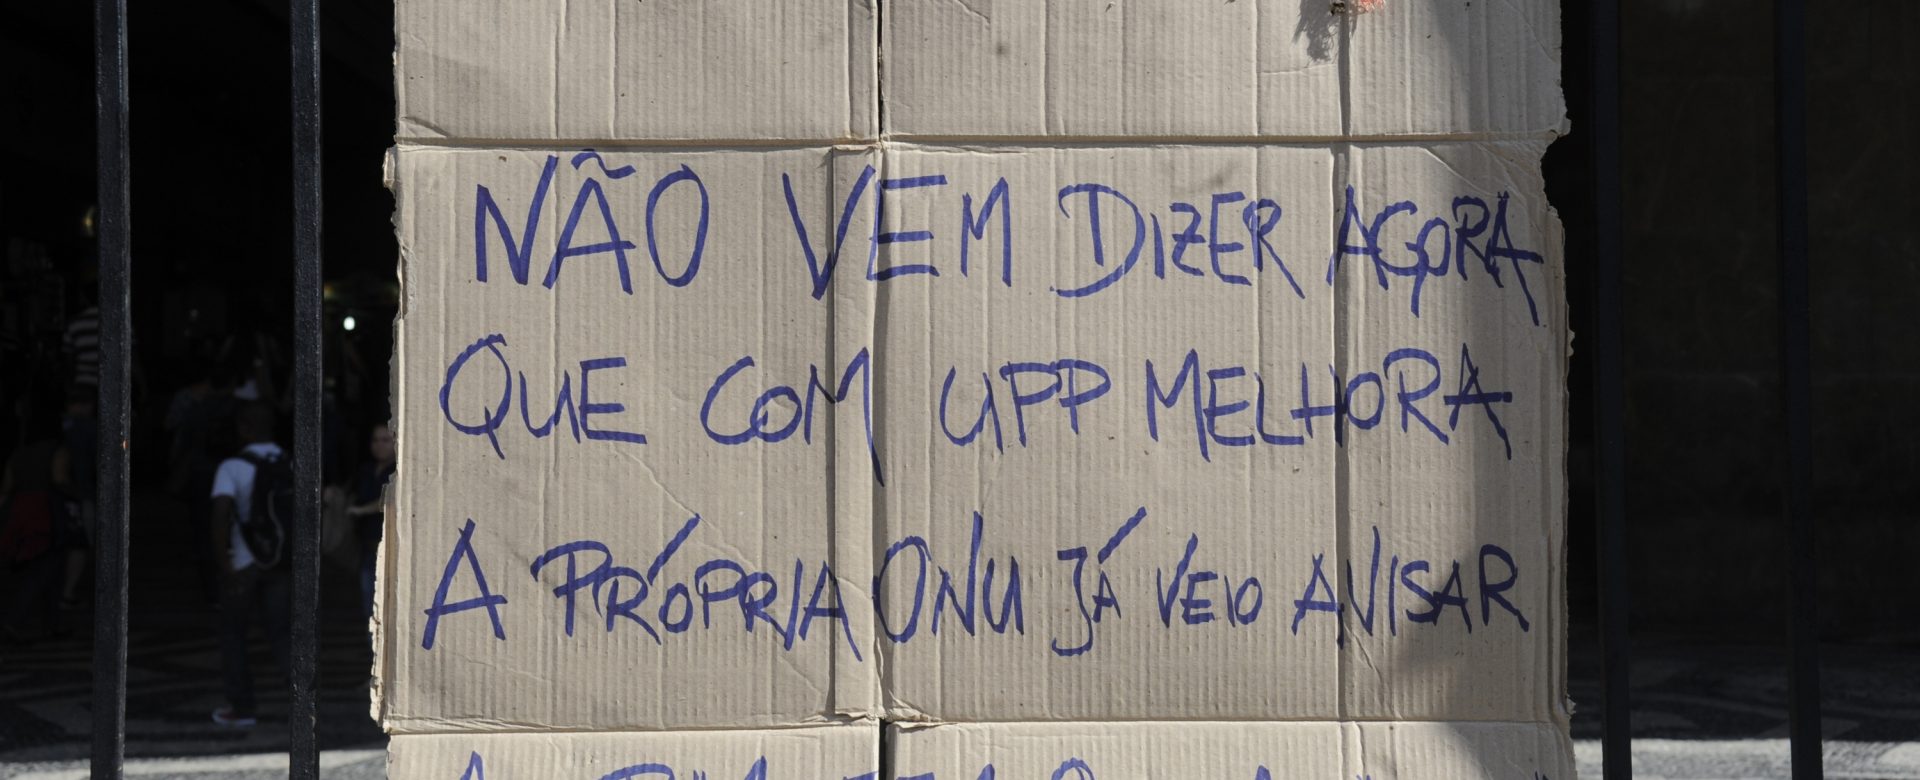 NÃO VEM DIZER AGORA
QUE COM UPP MELHORA
A PRÓPRIA ONU JÁ VEIO AVISAR